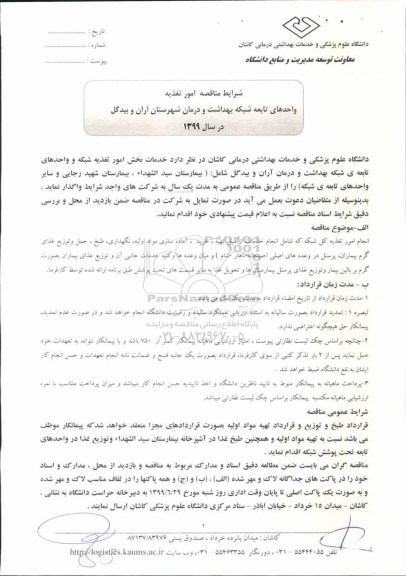 دانشگاه علوم پزشکی و خدمات بهداشتی درمانی کاشان
معاونت توسعه مدیریت و منابع دانشگاه
تاریخ :
شماره :
پیوست :
شرایط مناقصه امور تغذیه
واحدهای تابعه شبکه بهداشت و درمان شهرستان آران و بیدگل
در سال ۱۳۹۹
دانشگاه علوم پزشکی و خدمات بهداشتی درمانی کاشان در نظر دارد خدمات بخش امور تغذیه شبکه و واحدهای
تابعه ی شبکه بهداشت و درمان آران و بیدگل شامل: ( بیمارستان سید الشهداء ، بیمارستان شهید رجایی و سایر
واحدهای تابعه ی شبکه) را از طریق مناقصه عمومی به مدت یک سال به شرکت های واجد شرایط واگذار نماید .
بدینوسیله از متقاضیان دعوت بعمل می آید در صورت تمایل به شرکت در مناقصه ضمن بازدید از محل و بررسی
دقیق شرایط اسناد مناقصه نسبت به اعلام قیمت پیشنهادی خود اقدام نمائید.
الف-موضوع مناقصه
انجام امور تغذیه کل شبکه که شامل انجام خدمات آماده سازی مواد اولیه، نگهداری، طبخ ، حمل وتوزیع غذای
گرم بیماران، پرسنل در وعده های اصلی و میان وعده ها و کلیه خدمات جانبی آن و توزیع غذای بیماران بصورت
گرم بر بالین بیمار وتوزیع غذای پرسنل بیمارستان ها و تحویل غذا به سایر قسمت های تحت پوشش طبق برنامه ارائه شده توسط کارفرما.
ب - مدت زمان قرارداد:
۱-مدت زمان قرارداد از تاریخ امضاء قرارداد
تبصره ۱ : تمدید قرارداد بصورت سالیانه به استناد ارزیابی عملکرد سالیانه و رضایت دانشگاه انجام خواهد شد و در صورت عدم تمدید،
پیمانکار حق هیچگونه اعتراضی ندارد.
۲-چنانچه براساس چک لیست نظارتی پیوست ، امتیاز ارزشیابی ماهیانه پیمانکار کمتر از ۷۵۰ باشد و یا پیمانکار نتواند به تعهدات خود
عمل نماید پس از ۲ بار تذکر کتبی از سوی کارفرما، قرارداد بصورت یک جانبه فسخ و ضمانت نامه انجام تعهدات و حسن انجام کار
ایشان به نفع دانشگاه ضبط خواهد شد .
۳-پرداخت ماهیانه به پیمانکار منوط به تایید ناظرین دانشگاه و اخذ تاییدیه حسن انجام کار میباشد و میزان پرداخت متناسب با نمره
ارزشیابی ماهیانه مکتسبه پیمانکار براساس چک لیست نظارتی میباشد.
شرایط عمومی مناقصه
قرارداد طبخ و توزیع و قرارداد تهیه مواد اولیه بصورت قراردادهای مجزا منعقد خواهد شدکه پیمانکار موظف
می باشد نسبت به تهیه مواد اولیه و همچنین طبخ غذا در آشپزخانه بیمارستان سید الشهداء وتوزیع غذا در واحدهای
تابعه تحت پوشش شبکه اقدام نماید .
مناقصه گران می بایست ضمن مطالعه دقیق اسناد و مدارک مربوط به مناقصه و بازدید از محل ، مدارک و اسناد
خود را در پاکت های جداگانه لاک و مهر شده (الف) ، (ب) و (ج) و همه پاکتها را در لفاف مناسب لاک و مهر شده
و به صورت یک پاکت اصلی تا پایان وقت اداری روز شنبه مورخ ۱۳۹۹/۶/۲۹ به دبیرخانه حراست دانشگاه به نشانی .
کاشان - میدان ۱۵ خرداد - خیابان اباذر - ستاد مرکزی دانشگاه علوم پزشکی کاشان ارسال نمایند .
۱
کاشان : میدان پانزده خرداد ، صندوق پستی ۸۷۱۳۷/۸۳۹۷۶
تلفن ۵۵۴۴۴۰۵۵ - ۰۳۱ ، دورنگار ۵۵۴۶۳۳۵۵ - ۰۳۱ ، وب سایت http://logistics.kaums.ac.ir
ParsNamadData
پایگاه اطلاع رسانی مناقصه و مزایده
۰۲۱-۸۸۳۴۹۶۷۰-۵